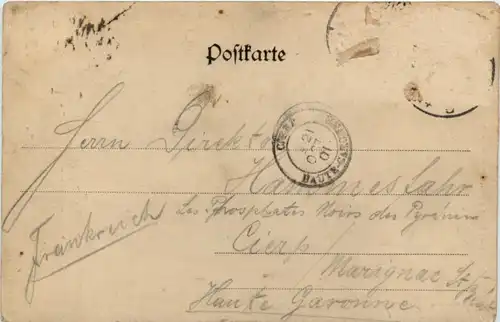 Postkarte
Herrn Direktor
Hannes Lahr
Les Phosphates Noirs des Pyrénées
Cierp
Frankreich
Marignac
Haute Garonne
CIERP
21
01
HAUTE-GARONNE